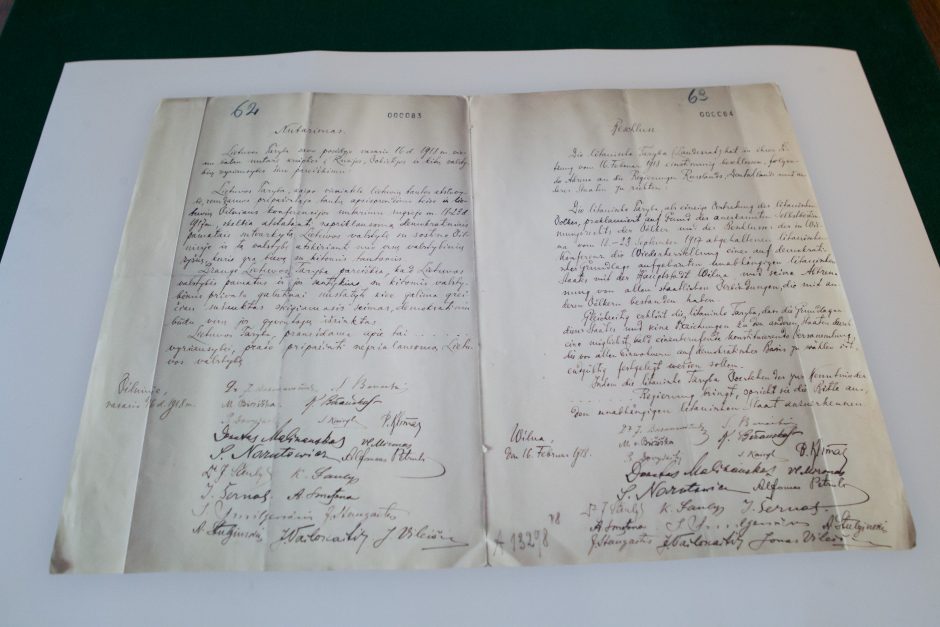 62
000083
Nutarimas.
Lietuvos Taryba savo posėdyje vasario 16 d. 1918 m. vienu
balsu nutarė kreiptis į Rusijos, Vokietijos ir kitų valsty-
bių vyriausybes šiuo pareiškimu:
Lietuvos Taryba, kaipo vienintelė lietuvių tautos atstovy-
bė, remdamos pripažintąja tautų apsisprendimo teise ir lie-
tuvių Vilniaus konferencijos nutarimu rugsėjo m. 18-23 d.
1917 m., skelbia atstatanti nepriklausomą demokratiniais
pamatais sutvarkytą Lietuvos valstybę su sostine Vil-
niuje ir tą valstybę atskirianti nuo visų valstybinių
ryšių, kurie yra buvę su kitomis tautomis.
Drauge Lietuvos Taryba pareiškia, kad Lietuvos
valstybės pamatus ir jos santykius su kitomis valsty-
bėmis privalo galutinai nustatyti kiek galima grei-
čiau sušauktas steigiamasis seimas, demokratiniu
būdu visų jos gyventojų išrinktas.
Lietuvos Taryba, pranešdama apie tai . . . . .
vyriausybei, prašo pripažinti nepriklausomą Lietu-
vos valstybę.
Vilniuje,
vasario 16 d. 1918 m.
Dr J. Basanavičius S. Banaitis
M. Biržiška K. Bizauskas
Pr. Dovydaitis S. Kairys P. Klimas
Donatas Malinauskas Vl. Mironas
S. Narutowicz Alfonsas Petrulis
Dr J. Šaulys K. Šaulys
J. Šernas A. Smetona
J. Smilgevičius J. Staugaitis
A. Stulginskis J. Vailokaitis J. Vileišis
63
000084
Beschluss
Die litauische Taryba (Landesrat) hat in ihrer Sit-
zung vom 16. Februar 1918 einstimmig beschlossen, folgen-
de Adresse an die Regierungen Russlands, Deutschlands und an-
derer Staaten zu richten:
Die litauische Taryba, als einzige Vertretung des litauischen
Volkes, proklamiert auf Grund des anerkannten Selbstbestim-
mungsrechts der Völker und des Beschlusses der in Wil-
na vom 18-23 September 1917 abgehaltenen litauischen
Konferenz die Wiederherstellung eines auf demokrati-
scher Grundlage aufgebauten unabhängigen litauischen
Staates mit der Hauptstadt Wilna und seine Abtren-
nung von allen staatlichen Verbindungen, die mit an-
deren Völkern bestanden haben.
Gleichzeitig erklärt die litauische Taryba, dass die Grundlagen
dieses Staates und seine Beziehungen zu den anderen Staaten durch
eine möglichst bald einzuberufende konstituierende Versammlung,
die von allen Einwohnern auf demokratischer Basis zu wählen ist,
endgültig festgelegt werden sollen.
Indem die litauische Taryba Vorstehendes zur Kenntnis der
. . . . . Regierung bringt, spricht sie die Bitte aus,
den unabhängigen litauischen Staat anzuerkennen.
Wilna,
den 16. Februar 1918.
Dr J. Basanavičius S. Banaitis
M. Biržiška K. Bizauskas
Pr. Dovydaitis S. Kairys P. Klimas
Donatas Malinauskas Vl. Mironas
S. Narutowicz Alfonsas Petrulis
Dr J. Šaulys K. Šaulys J. Šernas
A. Smetona J. Smilgevičius A. Stulginski
J. Staugaitis J. Vailokaitis Jonas Vileišis
A 13298